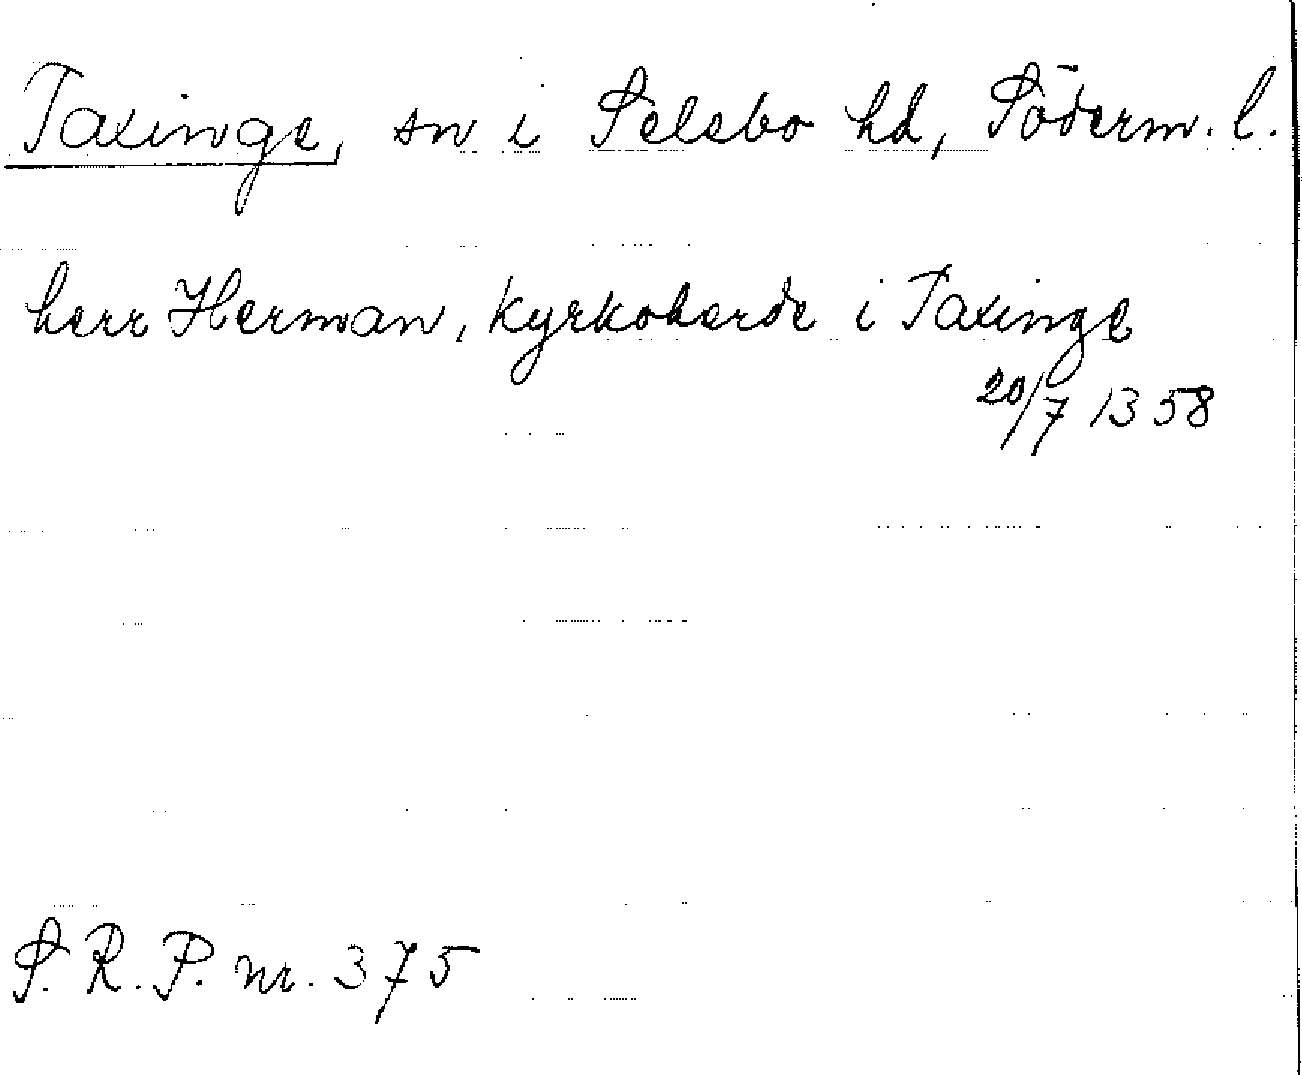 Taxinge, sn i Selebo hd, Söderm. l.
herr Herman, kyrkoherde i Taxinge
20/7 1358
S. R. P. nr. 375